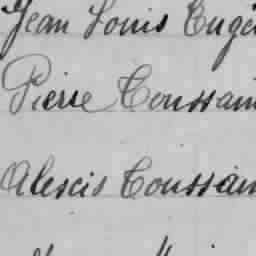 Jean Louis Eugè
Pierre Toussain
Alescis Toussain